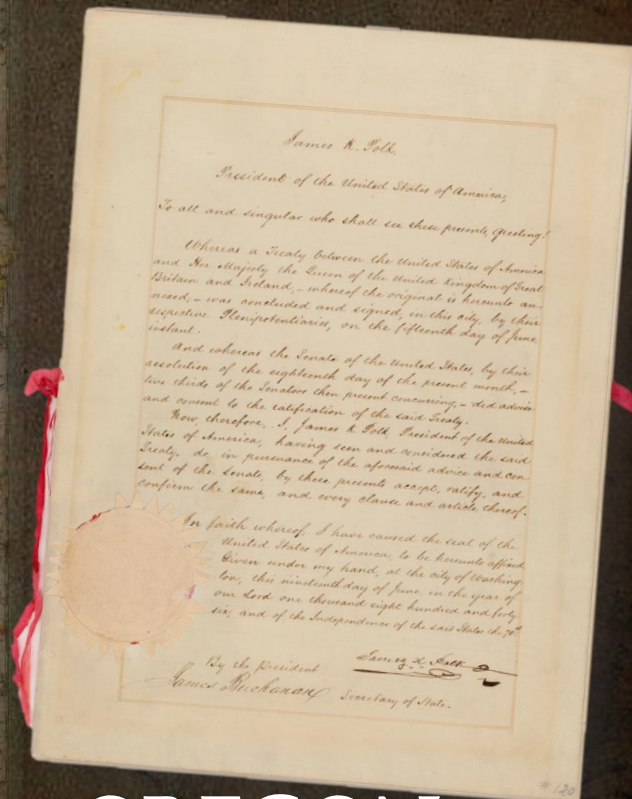 James K. Polk.
President of the United States of America,
To all and singular who shall see these presents, Greeting!
Whereas a Treaty between the United States of America
and Her Majesty the Queen of the United Kingdom of Great
Britain and Ireland, – whereof the original is hereunto an-
nexed, – was concluded and signed, in this city, by their
respective Plenipotentiaries, on the fifteenth day of June,
instant.
And whereas the Senate of the United States, by their
resolution of the eighteenth day of the present month, –
two thirds of the Senators then present concurring, – did advise
and consent to the ratification of the said Treaty.
Now, therefore, I, James K. Polk, President of the United
States of America, having seen and considered the said
Treaty, do, in pursuance of the aforesaid advice and con
sent of the Senate, by these presents accept, ratify, and
confirm the same, and every clause and article thereof.
In faith whereof, I have caused the seal of the
United States of America to be hereunto affixed
Given under my hand, at the city of Washing
ton, this nineteenth day of June, in the year of
our Lord one thousand eight hundred and forty
six, and of the Independence of the said States the 70th
James K. Polk
By the President
James Buchanan
Secretary of State.
# 120
OREGON